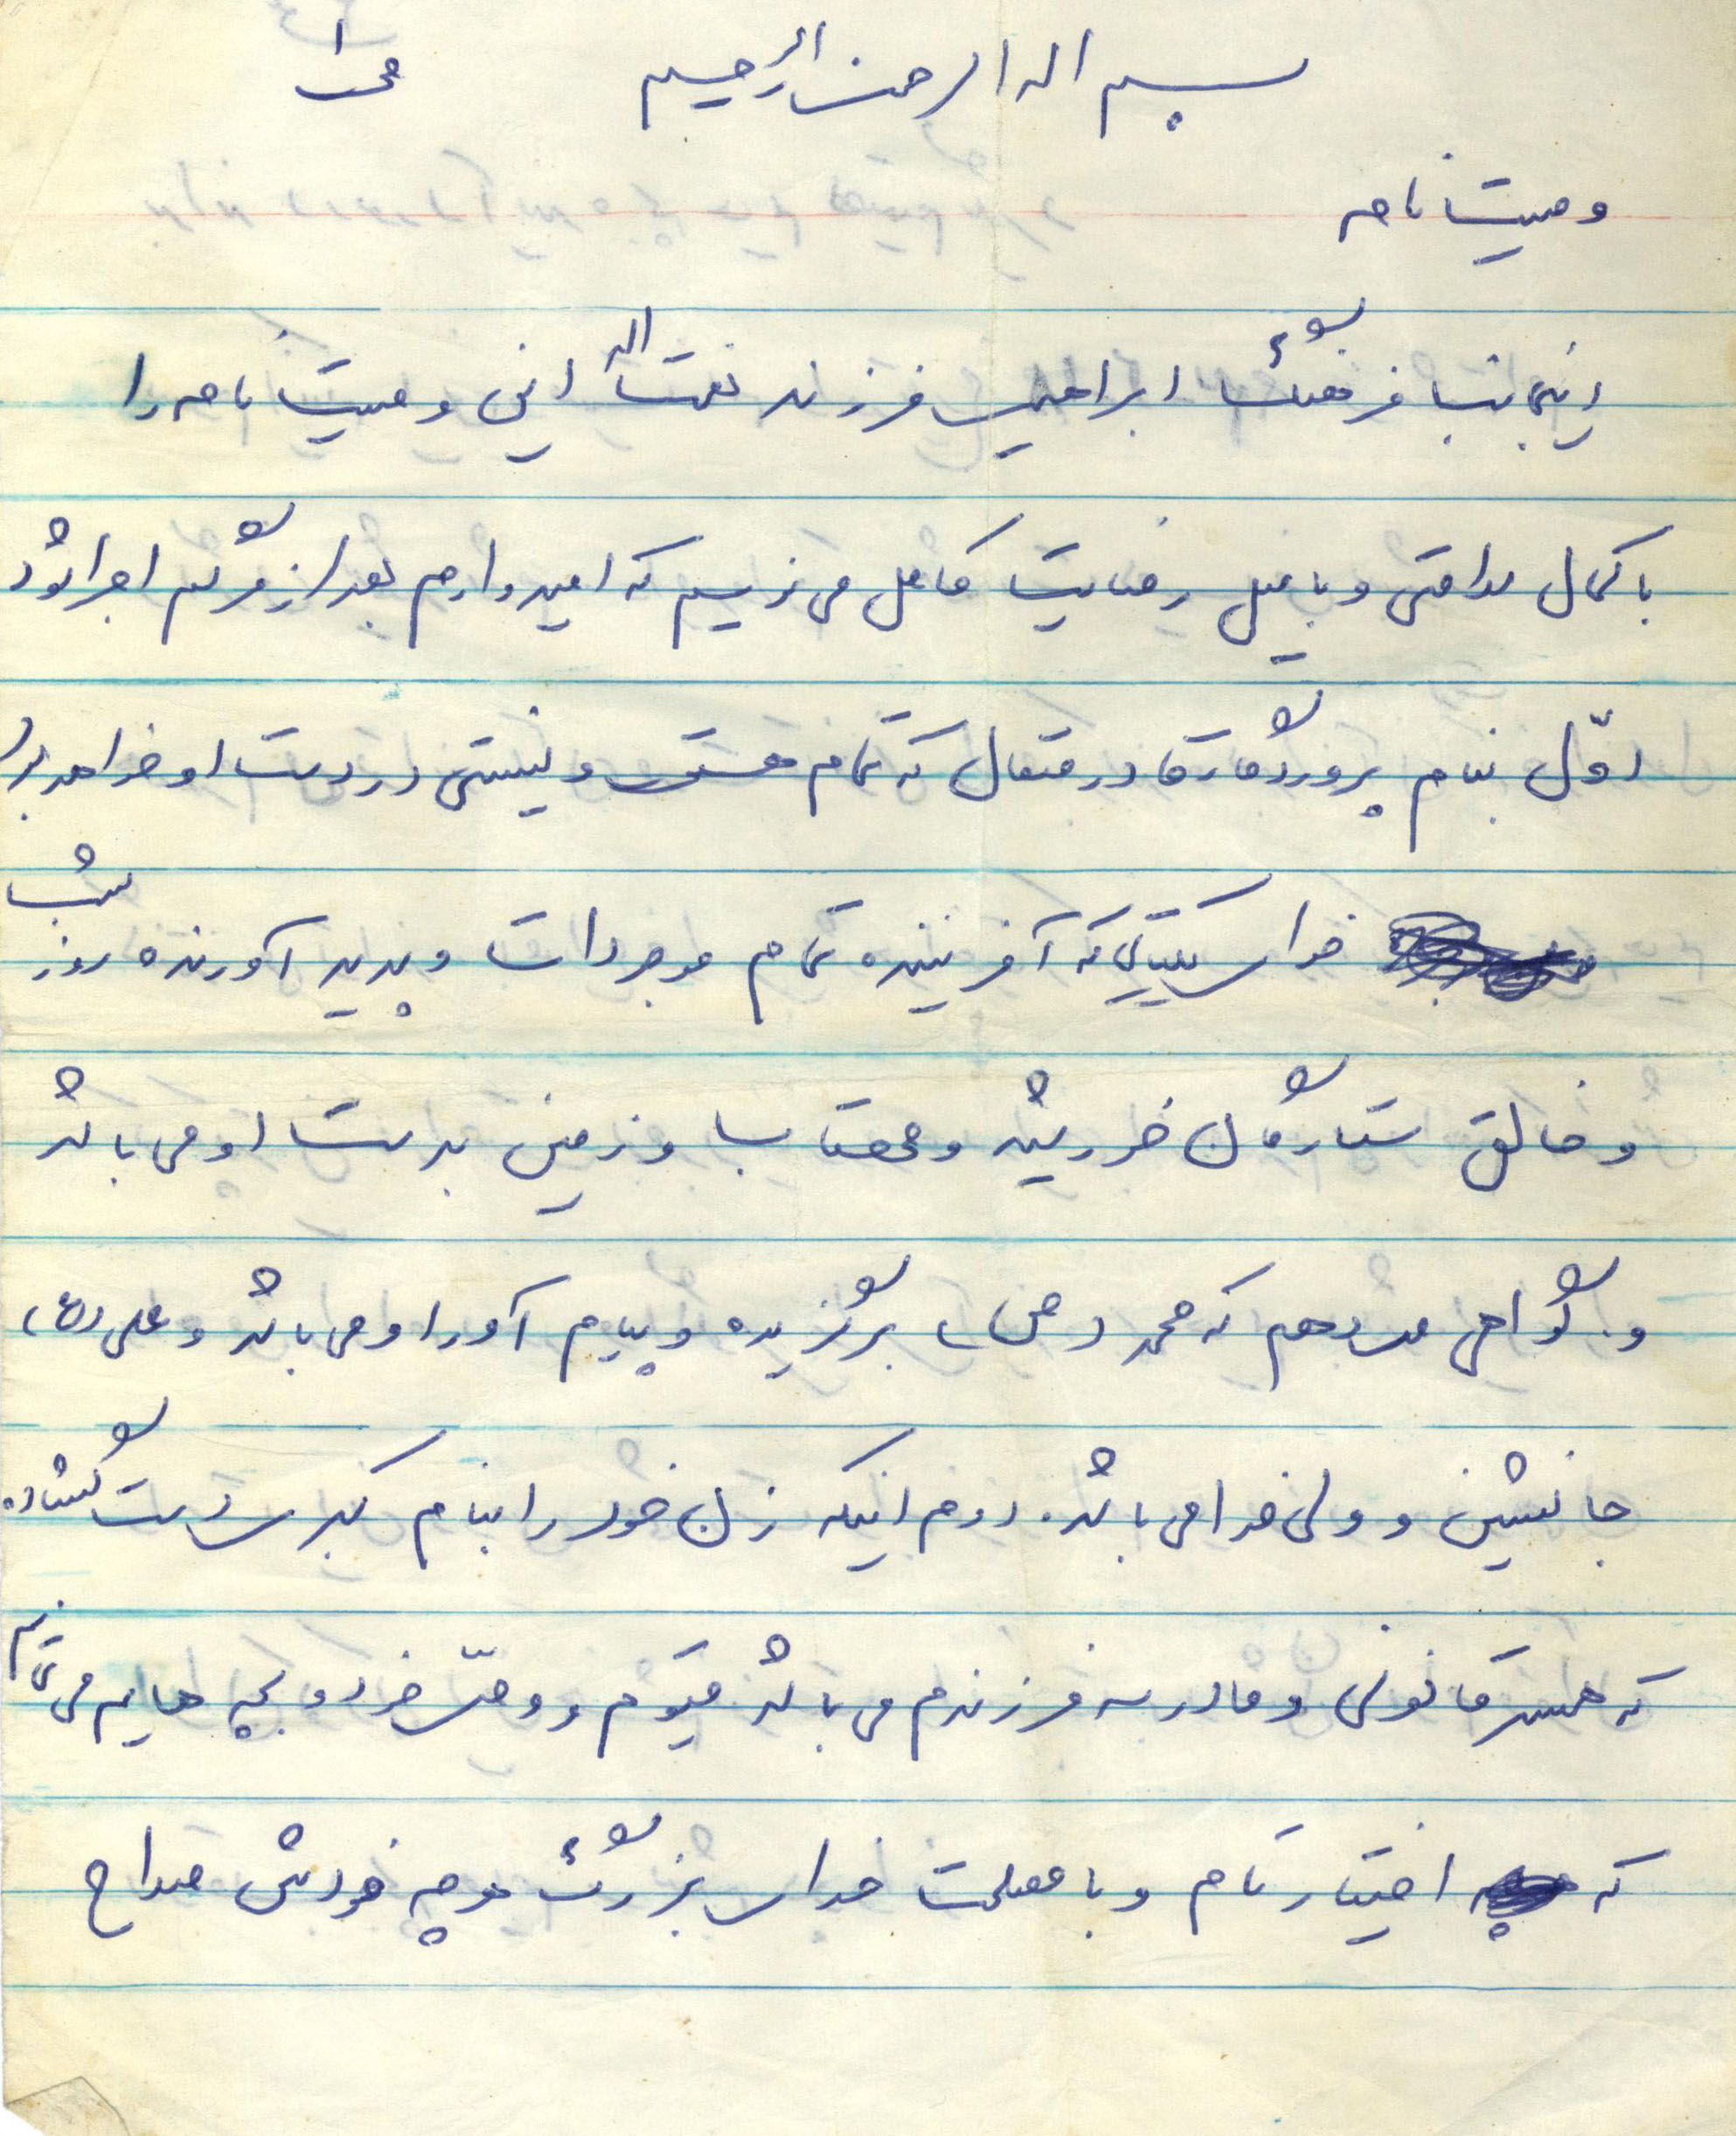 بسم اله الرحمن الرحیم
وصیت نامه
اینجانب فرهنگ ابراهیمی فرزند نعمت اله این وصیت نامه را
با کمال صداقتی و با میل رضایت کامل می نویسم که امیدوارم بعد از مرگم اجرا شود
اوّل بنام پروردگار قادر متعال که تمام هستی و نیستی در دست او خواهد بود
خدای یکتایی که آفریننده تمام موجودات و پدید آورنده روز شب
و خالق ستارگان خورشید و مهتاب و زمین بدست او می باشد
و گواهی میدهم که محمد (ص) برگزیده و پیام آور او می باشد و علی (ع)
جانشین و ولی خدا می باشد. دوم اینکه زن خود را بنام کبری دست گشاده
که همسر قانونی و مادر سه فرزندم می باشد قیّوم و وصّی خود و بچه هایم می نمایم
که اختیار تام و با مصلحت خدای بزرگ هرچه خودش صداح